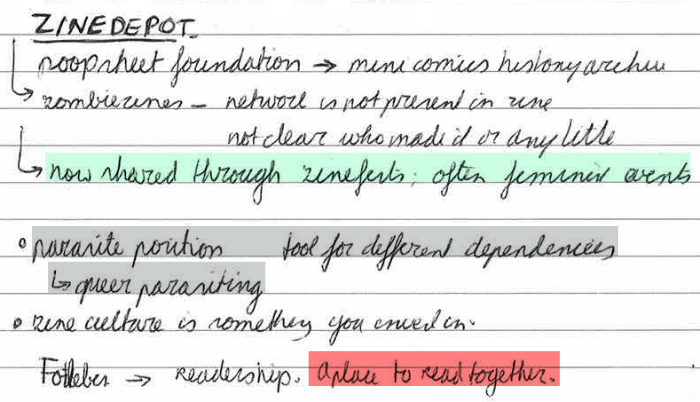 ZINEDEPOT
poopsheet foundation → mini comics history archive
↳ zombiezines – network is not present in zine
not clear who made it or any little
↳ now shared through zinefests; often feminist events
• parasite position tool for different dependencies
↳ queer parasiting
• zine culture is you in.
→ readership. a place to read together.